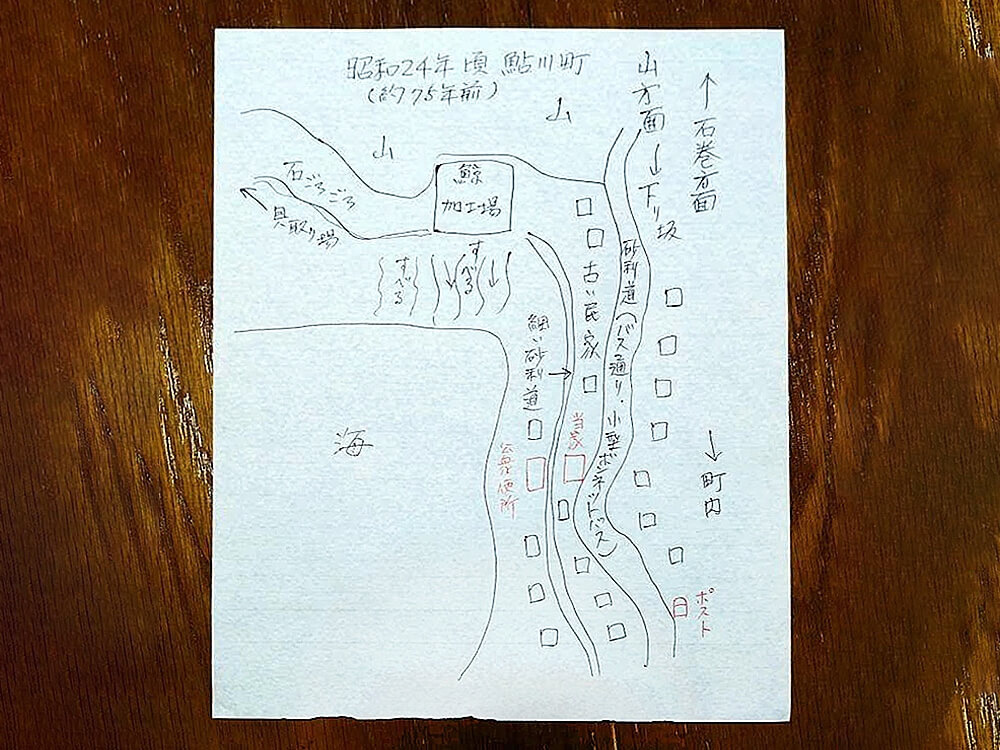 昭和24年頃 鮎川町
(約75年前)
山方面
↓下り坂
↑石巻方面
山
山
鯨
加工場
石ごろごろ
貝取り場
すべる
すべる
古い民家
砂利道(バス通り・小型ボンネットバス)
細い砂利道→
海
当家
公衆便所
↓町内
ポスト